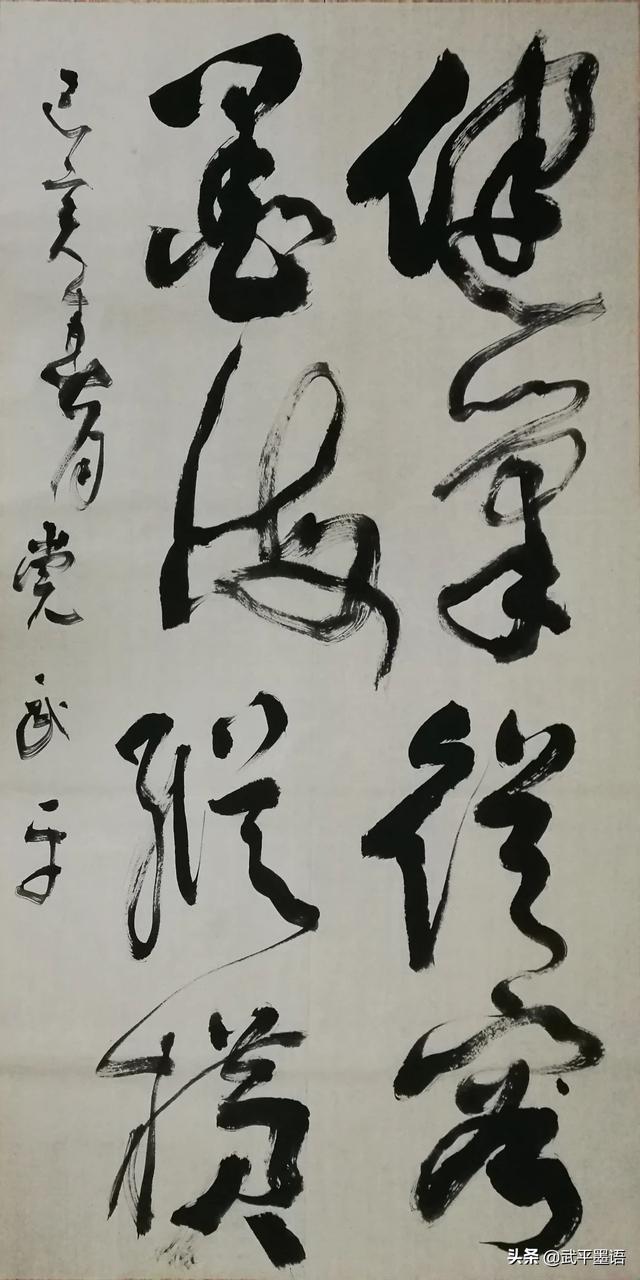 健笔从容
墨海纵横
己亥春月党武平
头条 @武平墨语